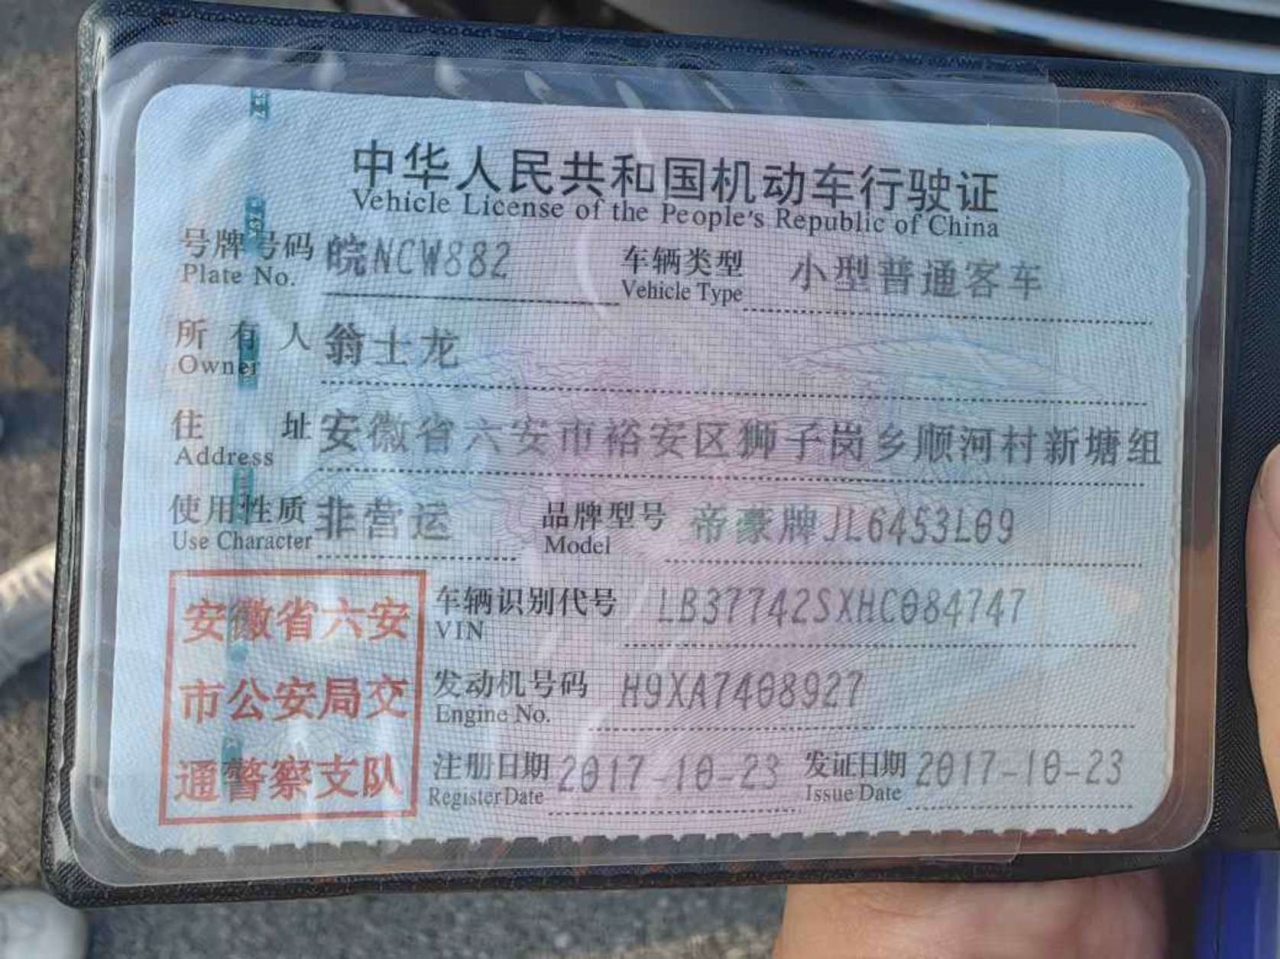 中华人民共和国机动车行驶证
Vehicle License of the People's Republic of China
号牌号码 皖NCW882 车辆类型 小型普通客车
Plate No. Vehicle Type
所有人 翁士龙
Owner
住址 安徽省六安市裕安区狮子岗乡顺河村新塘组
Address
使用性质 非营运 品牌型号 帝豪牌JL6453L09
Use Character Model
安徽省六安
市公安局交
通警察支队
车辆识别代号 LB37742SXHC084747
VIN
发动机号码 H9XA7408927
Engine No.
注册日期 2017-10-23 发证日期 2017-10-23
Register Date Issue Date